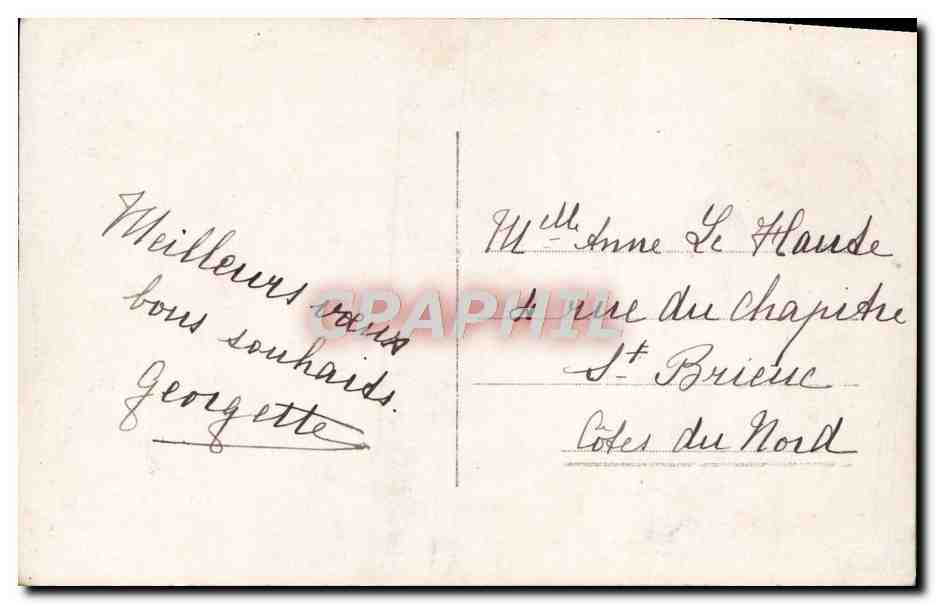 Meilleurs vœux
bons souhaits.
Georgette
Mlle Anne Le Hande
4 rue du Chapitre
St Brieuc
Côtes du Nord
GRAPHIL